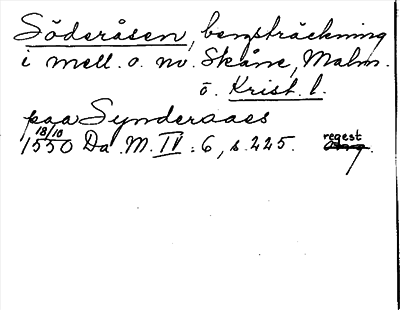 Söderåsen, bergsträckning
i mell. o. nv. Skåne, Malm.
ö. Krist. l.
paa Synderaaes
18/10
1550 Da. M. IV: 6, s. 225. regest